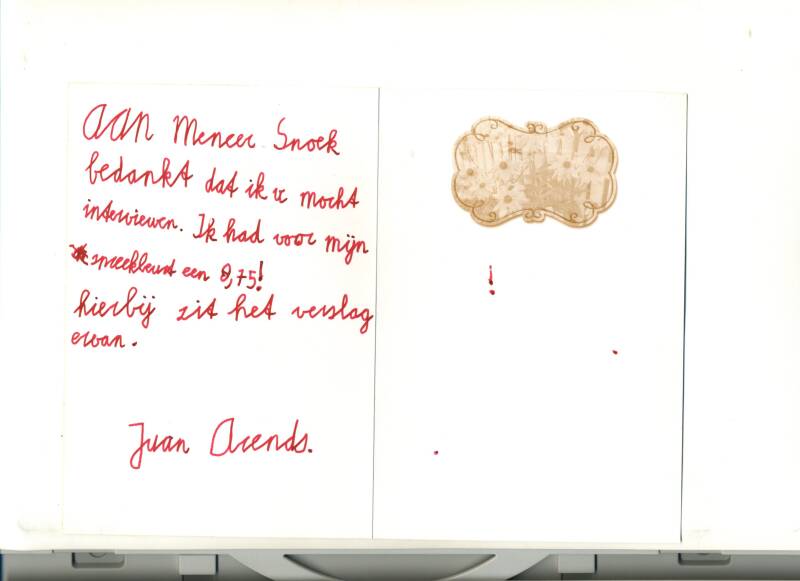 AAN Meneer Snoek
bedankt dat ik u mocht
interviewen. Ik had voor mijn
spreekbeurt een 8,75!
hierbij zit het verslag
ervan.
Juan Arends.
!